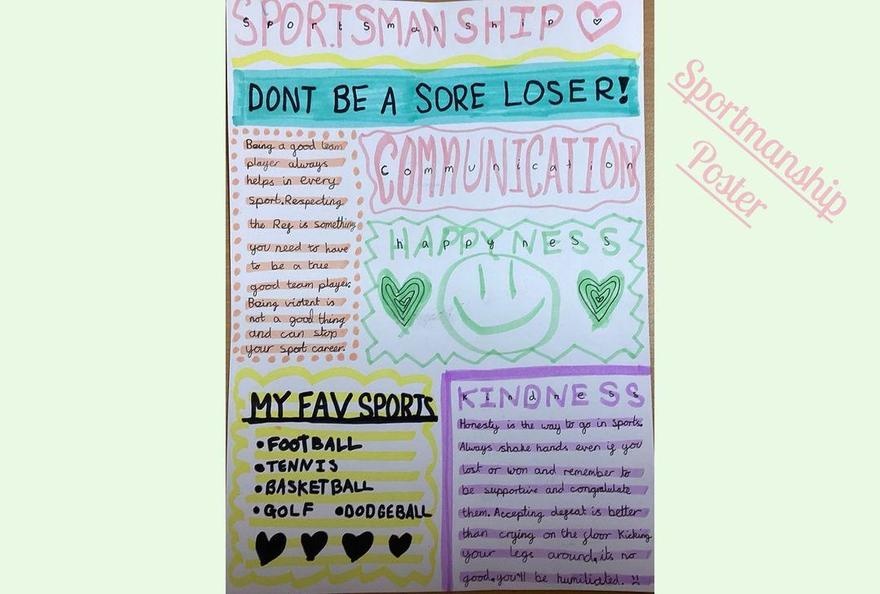 SPORTSMANSHIP
Sportsmanship
DONT BE A SORE LOSER!
Being a good team
player always
helps in every
sport. Respecting
the Ref is something
you need to have
to be a true
good team player.
Being violent is
not a good thing
and can stop
your sport career.
COMMUNICATION
Communication
HAPPYNESS
happyness
MY FAV SPORTS
•FOOTBALL
•TENNIS
•BASKETBALL
•GOLF •DODGEBALL
KINDNESS
Kindness
Honesty is the way to go in sports.
Always shake hands even if you
lost or won and remember to
be supportive and congratulate
them. Accepting defeat is better
than crying on the floor Kicking
your legs around, its no
good, you'll be humiliated. :(
Sportmanship
Poster